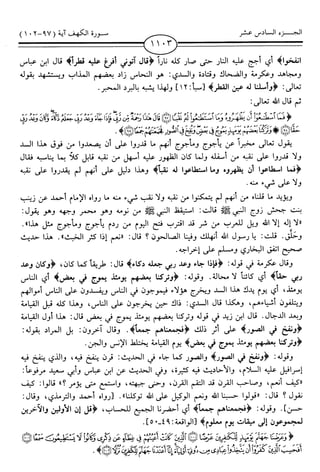 الجـزء السادس عشر
سورة الكهف آية (٩٧-١٠٢)
١١٠٣
انفخوا﴾ أي أجج عليه النار حتى صار كله ناراً ﴿قال آتوني أفرغ عليه قطراً﴾ قال ابن عباس
ومجاهد وعكرمة والضحاك وقتادة والسدي: هو النحاس زاد بعضهم المذاب ويستشهد بقوله
تعالى: ﴿وأسلنا له عين القطر﴾ [سبأ: ١٢] ولهذا يشبه بالبرد المحبر.
ثم قال الله تعالى:
﴿فَمَا اسْطَاعُوا أَن يَظْهَرُوهُ وَمَا اسْتَطَاعُوا لَهُ نَقْبًا ۝ قَالَ هَذَا رَحْمَةٌ مِّن رَّبِّي فَإِذَا جَاءَ وَعْدُ رَبِّي جَعَلَهُ دَكَّاءَ وَكَانَ وَعْدُ رَبِّي
حَقًّا ۝ وَتَرَكْنَا بَعْضَهُمْ يَوْمَئِذٍ يَمُوجُ فِي بَعْضٍ وَنُفِخَ فِي الصُّورِ فَجَمَعْنَاهُمْ جَمْعًا ۝﴾.
يقول تعالى مخبراً عن يأجوج ومأجوج أنهم ما قدروا على أن يصعدوا من فوق هذا السد
ولا قدروا على نقبه من أسفله ولما كان الظهور عليه أسهل من نقبه قابل كلاً بما يناسبه فقال
﴿فما اسطاعوا أن يظهروه وما استطاعوا له نقباً﴾ وهذا دليل على أنهم لم يقدروا على نقبه
ولا على شيء منه.
ويؤيد ما قلناه من أنهم لم يتمكنوا من نقبه ولا نقب شيء منه ما رواه الإمام أحمد عن زينب
بنت جحش زوج النبي ﷺ قالت: استيقظ النبي ﷺ من نومه وهو محمر وجهه وهو يقول:
«لا إله إلا الله ويل للعرب من شر قد اقترب فتح اليوم من ردم يأجوج ومأجوج مثل هذا».
وحلّق. قلت: يا رسول الله أنهلك وفينا الصالحون؟ قال: «نعم إذا كثر الخبث». هذا حديث
صحيح اتفق البخاري ومسلم على إخراجه.
وقال عكرمة في قوله: ﴿فإذا جاء وعد ربي جعله دكاء﴾ قال: طريقاً كما كان، ﴿وكان وعد
ربي حقاً﴾ أي كائناً لا محالة. وقوله: ﴿وتركنا بعضهم يومئذ يموج في بعض﴾ أي الناس
يومئذ، أي يوم يدك هذا السد ويخرج هؤلاء فيموجون في الناس ويفسدون على الناس أموالهم
ويتلفون أشياءهم، وهكذا قال السدي: ذاك حين يخرجون على الناس، وهذا كله قبل القيامة
وبعد الدجال. قال ابن زيد في قوله وتركنا بعضهم يومئذ يموج في بعض قال: هذا أول القيامة
﴿ونفخ في الصور﴾ على أثر ذلك ﴿فجمعناهم جمعاً﴾. وقال آخرون: بل المراد بقوله:
﴿وتركنا بعضهم يومئذ يموج في بعض﴾ يوم القيامة يختلط الإنس والجن.
وقوله: ﴿ونفخ في الصور﴾ والصور كما جاء في الحديث: قرن ينفخ فيه، والذي ينفخ فيه
إسرافيل عليه السلام، والأحاديث فيه كثيرة، وفي الحديث عن ابن عباس وأبي سعيد مرفوعاً:
«كيف أنعم، وصاحب القرن قد التقم القرن، وحنى جبهته، واستمع متى يؤمر ؟» قالوا: كيف
نقول ؟ قال: «قولوا حسبنا الله ونعم الوكيل على الله توكلنا». [رواه أحمد والترمذي، وقال:
حسن]. وقوله: ﴿فجمعناهم جمعاً﴾ أي أحضرنا الجميع للحساب، ﴿قل إن الأولين والآخرين
لمجموعون إلى ميقات يوم معلوم﴾ [الواقعة: ٤٩، ٥٠].
﴿وَعَرَضْنَا جَهَنَّمَ يَوْمَئِذٍ لِّلْكَافِرِينَ عَرْضًا ۝ الَّذِينَ كَانَتْ أَعْيُنُهُمْ فِي غِطَاءٍ عَن ذِكْرِي وَكَانُوا لَا يَسْتَطِيعُونَ سَمْعًا ۝
أَفَحَسِبَ الَّذِينَ كَفَرُوا أَن يَتَّخِذُوا عِبَادِي مِن دُونِي أَوْلِيَاءَ إِنَّا أَعْتَدْنَا جَهَنَّمَ لِلْكَافِرِينَ نُزُلًا ۝﴾.